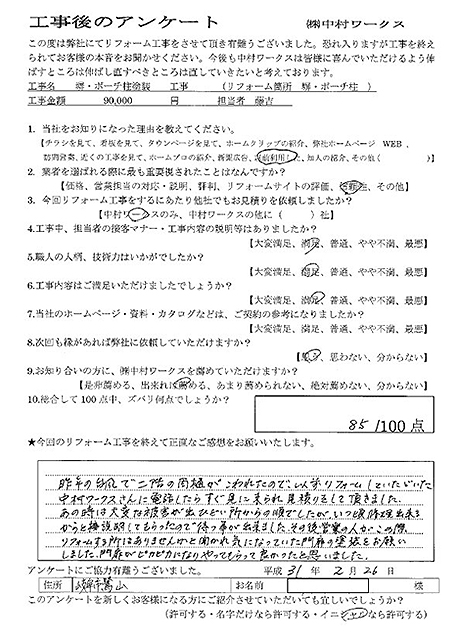 工事後のアンケート ㈱中村ワークス
この度は弊社にてリフォーム工事をさせて頂き有難うございました。恐れ入りますが工事を終え
られてお客様の本音をお聞かせください。今後も中村ワークスは皆様に喜んでいただけるよう伸
ばすところは伸ばし直すべきところは直していきたいと考えております。
工事名 塀・ポーチ柱塗装 工事 （リフォーム箇所 塀・ポーチ柱 ）
工事金額 90,000 円 担当者 藤吉
1. 当社をお知りになった理由を教えてください。
【チラシを見て、看板を見て、タウンページを見て、ホームクリップの紹介、弊社ホームページ WEB、
訪問営業、近くの工事を見て、ホームプロの紹介、新聞広告、以前利用した、知人の紹介、その他（ ）】
2. 業者を選ばれる際に最も重要視されたことはなんですか？
【価格、営業担当の対応・説明、評判、リフォームサイトの評価、信頼性、その他】
3. 今回リフォーム工事をするにあたり他社でもお見積りを依頼しましたか？
【中村ワークスのみ、中村ワークスの他に（ ）社】
4.工事中、担当者の接客マナー・工事内容の説明等はありましたか？
【大変満足、満足、普通、やや不満、最悪】
5.職人の人柄、技術力はいかがでしたか？
【大変満足、満足、普通、やや不満、最悪】
6.工事内容はご満足いただけましたでしょうか？
【大変満足、満足、普通、やや不満、最悪】
7.当社のホームページ・資料・カタログなどは、ご契約の参考になりましたか？
【大変満足、満足、普通、やや不満、最悪】
8.次回も縁があれば弊社に依頼していただけますか？
【思う、思わない、分からない】
9.お知り合いの方に、㈱中村ワークスを薦めていただけますか？
【是非薦める、出来れば薦める、あまり薦められない、絶対薦めない、分からない】
10.総合して100点中、ズバリ何点でしょうか？
85/100点
★今回のリフォーム工事を終えて正直なご感想をお願いいたします。
昨年の台風で二階の雨樋がこわれたので、以前リフォームしていただいた
中村ワークスさんに電話したらすぐ見に来られ見積りをして頂きました。
あの時は大変な被害が出ひどい所からの順でしたが、いつ頃修理出来る
からと説明してもらったので待つ事が出来ました。その後営業の人がこの際
リフォームする所はありませんかと聞かれ気になっていた門扉の塗装をお願い
しました。門扉がピカピカになりやってもらって良かったと思いました。
アンケートにご協力有難うございました。 平成 31 年 2 月 26 日
住所 お名前 様
このアンケートを新しくお客様になる方にご紹介させていただいても宜しいでしょうか？
（許可する・名字だけなら許可する・イニシャルなら許可する）